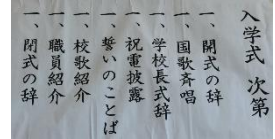 入学式 次第
一、開式の辞
一、国歌斉唱
一、学校長式辞
一、祝電披露
一、誓いのことば
一、校歌紹介
一、職員紹介
一、閉式の辞